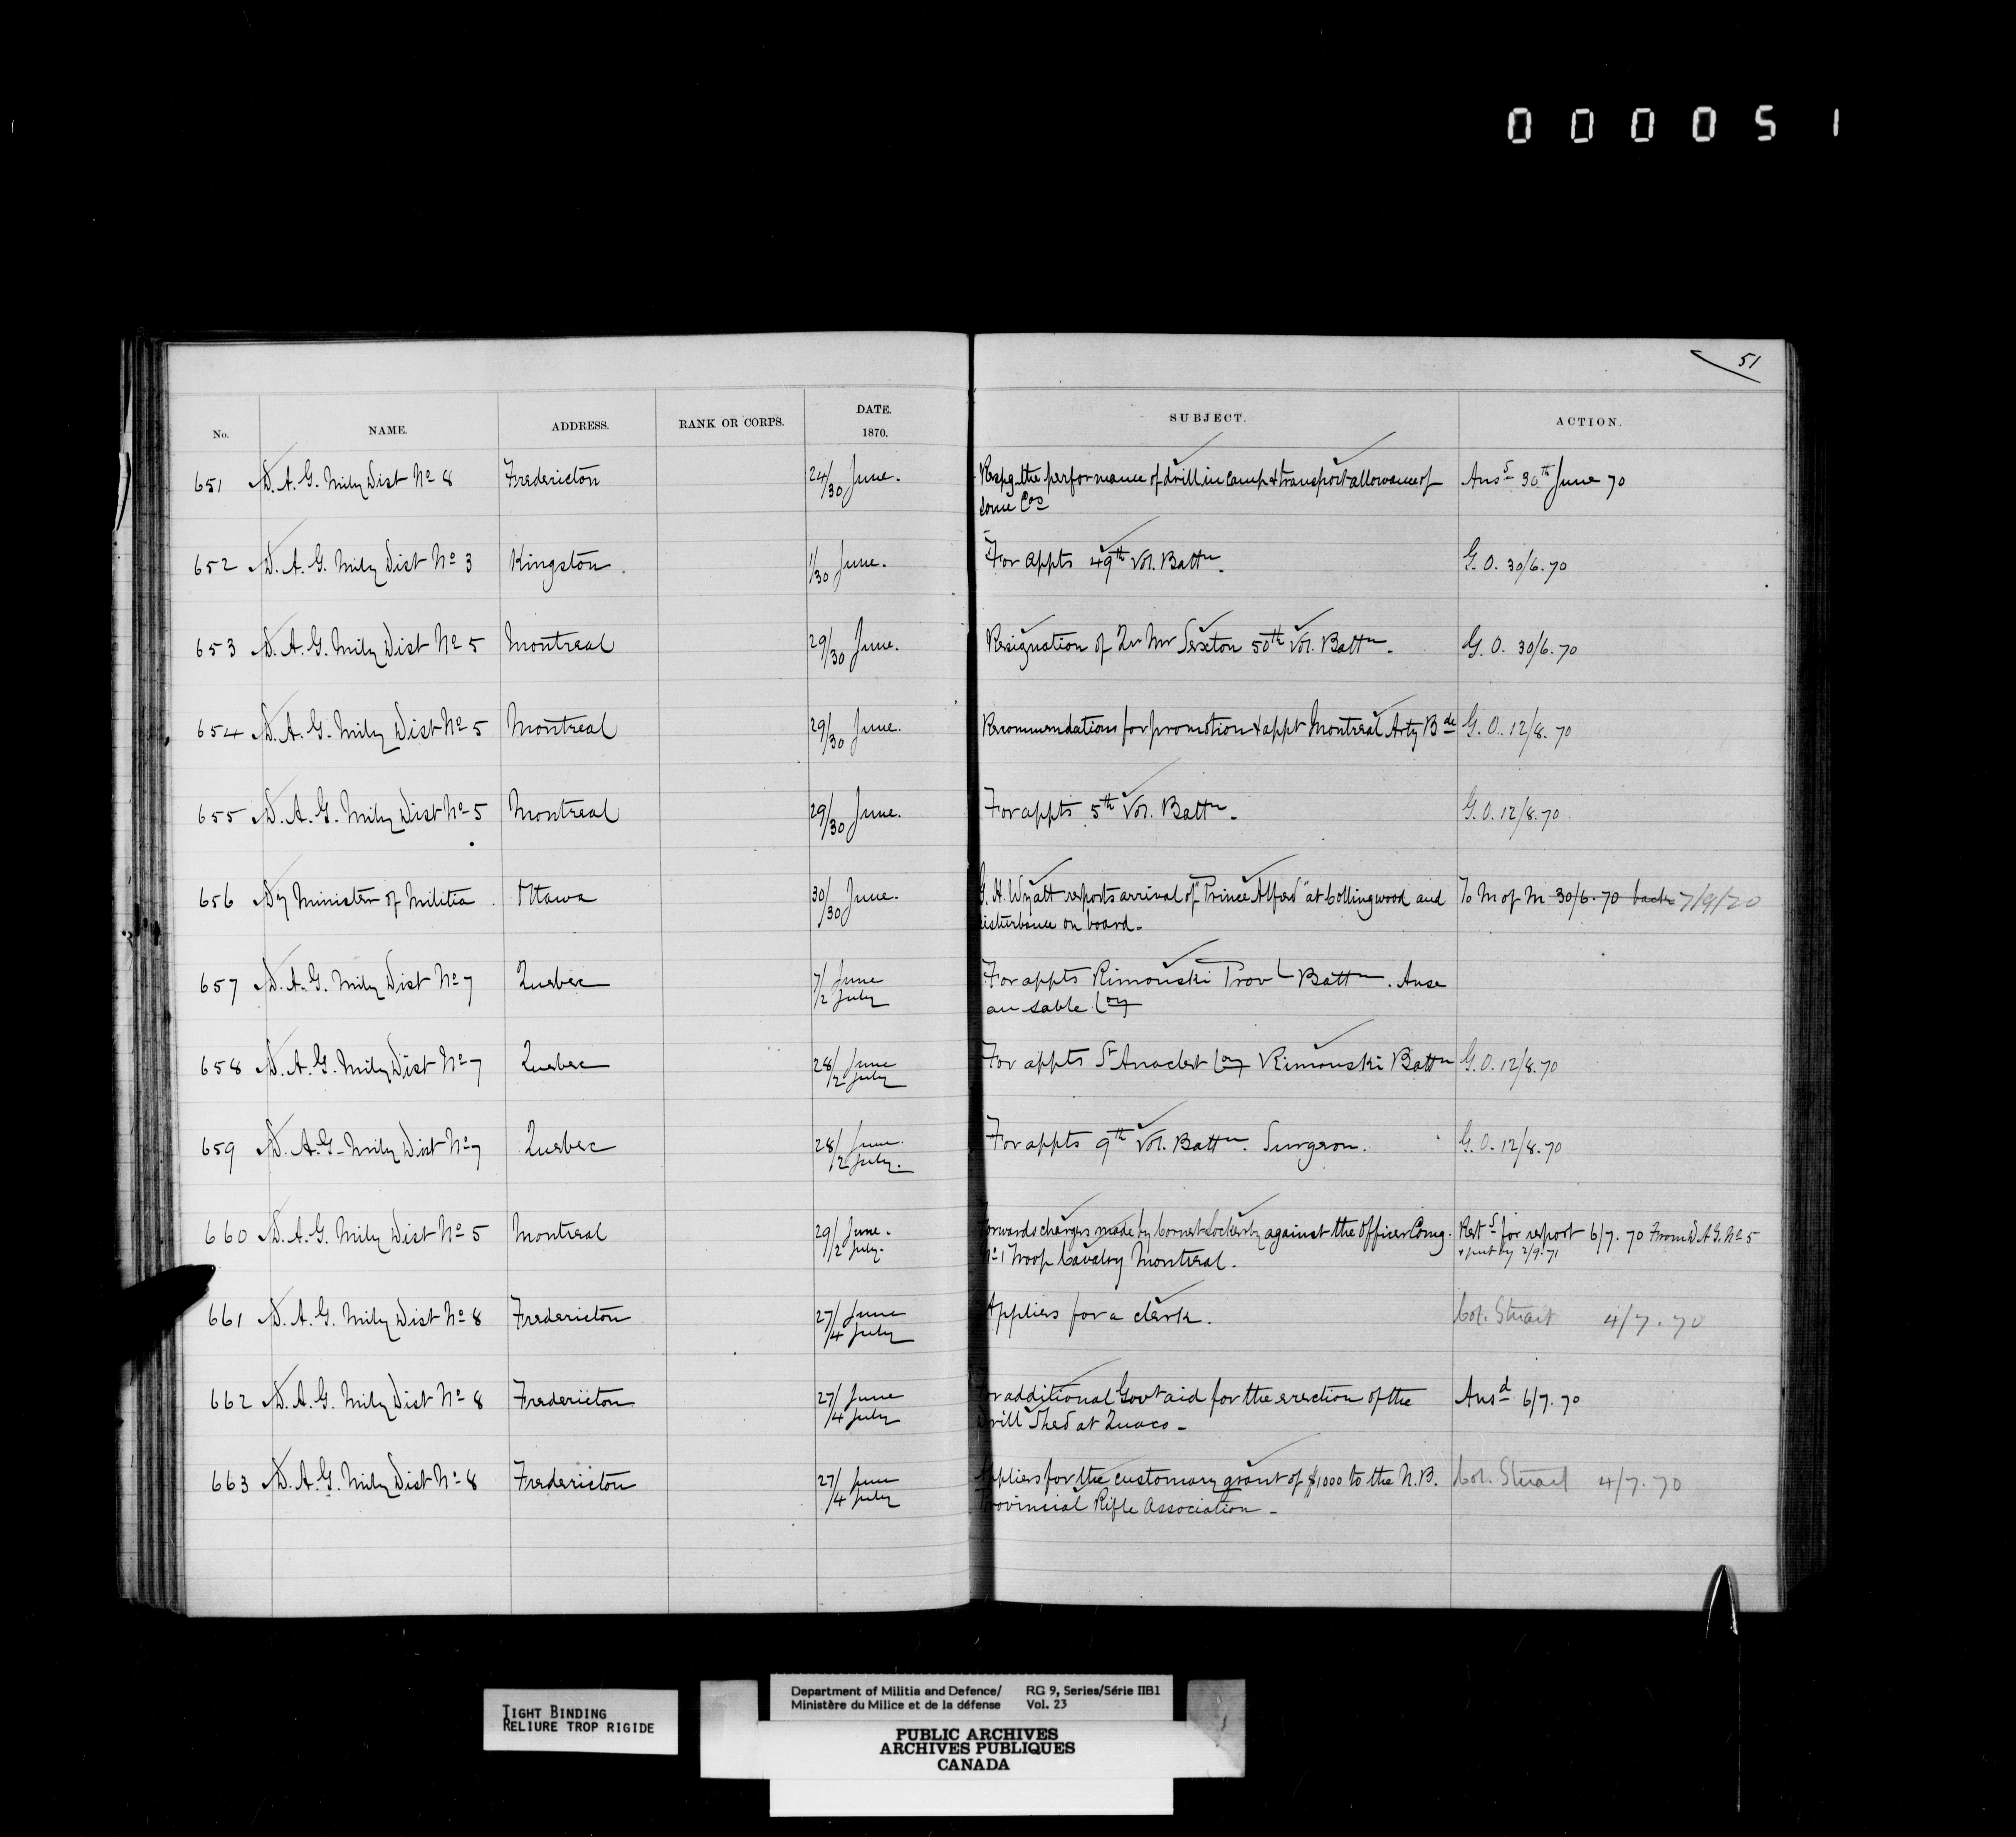 000051
51
No. NAME. ADDRESS. RANK OR CORPS. DATE. 1870. SUBJECT. ACTION.
651 D. A. G. Mily Dist No 8 Fredericton 24/30 June. Respg the performance of drill in camp & transport allowance of Ansd 30th June 70
some Cos
652 D. A. G. Mily Dist No 3 Kingston. 1/30 June. For appts 49th Vol. Battn. G. O. 30/6.70
653 D. A. G. Mily Dist No 5 Montreal 29/30 June. Resignation of Qr Mr Sexton 50th Vol. Battn. G. O. 30/6.70
654 D. A. G. Mily Dist No 5 Montreal 29/30 June. Recommendations for promotion & appt Montreal Arty Bde G. O. 12/8.70
655 D. A. G. Mily Dist No 5 Montreal 29/30 June. For appts 5th Vol. Battn. G. O. 12/8.70
656 Dy Minister of Militia Ottawa 30/30 June. G. H. Wyatt reports arrival of "Prince Alfred" at Collingwood and To M of M 30/6.70 back 7/9/70
disturbance on board.
657 D. A. G. Mily Dist No 7 Quebec 7/ June For appts Rimouski Provl Battn. Anse
/2 July au sable Coy
658 D. A. G. Mily Dist No 7 Quebec 28/ June For appts St Anaclet Coy Rimouski Battn G. O. 12/8.70
/2 July
659 D. A. G. Mily Dist No 7 Quebec 28/ June. For appts 9th Vol. Battn. Surgeon. G. O. 12/8.70
/2 July.
660 D. A. G. Mily Dist No 5 Montreal 29/ June. Forwards charges made by Cornet Lockerby against the Officer Comg. Retd for report 6/7.70 From D A G. No 5
/2 July. No 1 Troop Cavalry Montreal. & put by 2/9.71
661 D. A. G. Mily Dist No 8 Fredericton 27/ June Applies for a clerk. Col. Stuart 4/7.70
/4 July
662 D. A. G. Mily Dist No 8 Fredericton 27/ June For additional Govt aid for the erection of the Ansd 6/7.70
/4 July Drill Shed at Quaco.
663 D. A. G. Mily Dist No 8 Fredericton 27/ June Applies for the customary grant of $1000 to the N. B. Col. Stuart 4/7.70
/4 July Provincial Rifle Association.
TIGHT BINDING
RELIURE TROP RIGIDE
Department of Militia and Defence/ RG 9, Series/Série IIB1
Ministère du Milice et de la défense Vol. 23
PUBLIC ARCHIVES
ARCHIVES PUBLIQUES
CANADA